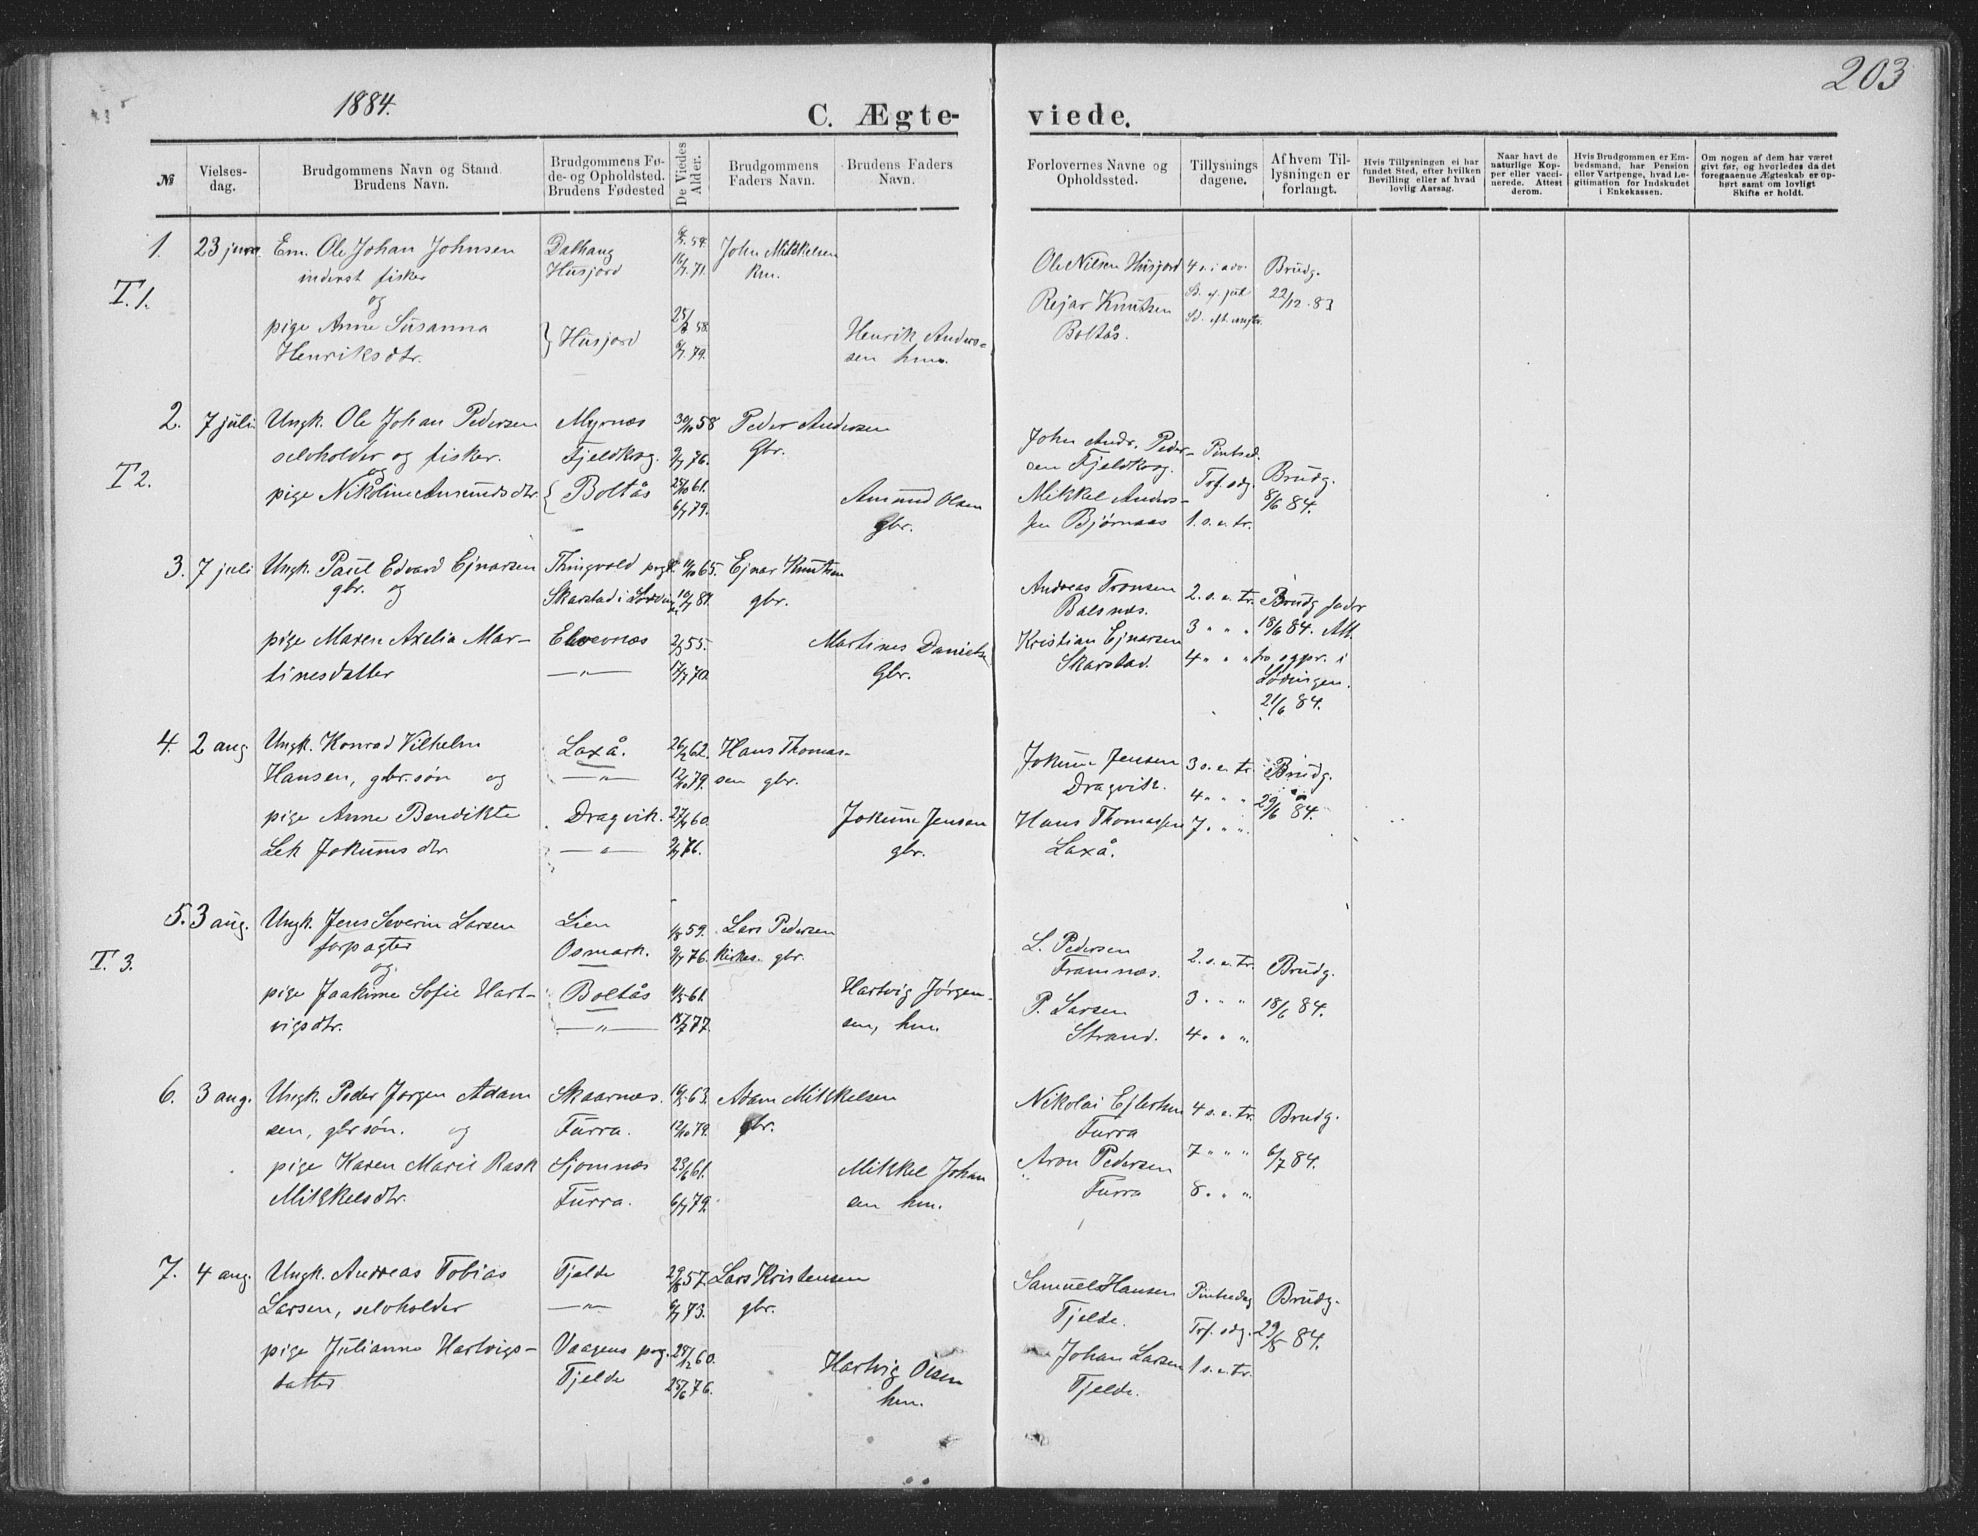 203
1884.
C. Ægte- viede.
№
Vielses-
dag.
Brudgommens Navn og Stand
Brudens Navn.
Brudgommens Fø-
de- og Opholdsted.
Brudens Fødested
De Viedes
Alder.
Brudgommens
Faders Navn.
Brudens Faders
Navn.
Forlovernes Navne og
Opholdssted.
Tillysnings
dagene.
Af hvem Til-
lysningen er
forlangt.
Hvis Tillysningen ei har
fundet Sted, efter hvilken
Bevilling eller af hvad
lovlig Aarsag.
Naar havt de
naturlige Kop-
per eller vacci-
nerede. Attest
derom.
Hvis Brudgommen er Em-
bedsmand, har Pension
eller Vartpenge, hvad Le-
gitimation for Indskudet
i Enkekassen.
Om nogen af dem har været
givt før, og hvorledes da det
foregaaende Ægteskab er op-
hørt samt om lovligt
Skifte er holdt.
1. 23 juni. Em. Ole Johan Johnsen
inderst fisker
og
pige Anne Susanna
Henriksdtr.
T.1.
Dalhaug
Husjord
Husjord
John Mikkelsen
hm.
Henrik Anders-
sen hm.
Ole Nilsen Husjord
Rejar Knutsen
Boltås.
Brudg.
22/12 83
2. 7 juli Ungk. Ole Johan Pedersen
selvholder og fisker.
og
pige Nikoline Amundsdtr.
T2.
Myrnæs
Fjeldkrog.
Boltås
30/10 58
9/7 76.
25/10 61.
6/7 79.
Peder Andersen
Gbr.
Amund Olsen
Gbr.
John Andr. Peder-
sen Fjeldkrog.
Mikkel Anders-
sen Bjørnaas
Pintsed.
Trf. sdg.
1. s. e. tr.
Brudg.
8/6 84.
3. 7 juli Ungk. Paul Edvard Ejnarsen
gbr. og
pige Maren Axelia Mar-
tinesdatter
Thingvold prgk.
Skarstad i Lødingen
Elvernæs
—"—
Ejnar Knutsen
gbr.
Martines Daniels
Gbr.
Andreas Tronsen
Balsnæs.
Kristian Ejnarsen
Skarstad.
2. s. e. tr.
3 " " "
4 " " "
Brudg fader
18/6 84. Att.
fra sgpr. i
Lødingen.
21/6 84.
4. 2 aug Ungk. Konrad Vilhelm
Hansen, gbr.søn og
pige Anne Bendikte
Lek Jokumsdtr.
Laxå.
—"—
Dragvik.
—"—
26/12 62.
12/10 79.
27/4 60.
9/7 76.
Hans Thomas-
sen gbr.
Jokum Jensen
gbr.
Jokum Jensen
Dragvik.
Hans Thomassen
Laxå.
3 s. e. tr.
4 " " "
7. " "
Brudg.
29/6 84.
5. 3 aug. Ungk. Jens Severin Larsen
forpagter
og
pige Joakime Sofie Hart-
vigsdtr.
T. 3.
Lien
Osmark.
Boltås
—"—
1/8 59.
9/7 76.
4/5 61.
15/7 77.
Lars Pedersen
gbr.
Hartvig Jørgen-
sen, hm.
L. Pedersen
Framnæs.
P. Larsen
Strand.
2. s. e. tr.
3. " "
4. " "
Brudg.
18/6 84.
6. 3 aug. Ungk. Peder Jørgen Adam
sen, gbr.søn. og
pige Karen Marie Rask
Mikkelsdtr.
Skaarnæs.
Furra.
Sjomnæs
Furra.
12/10 79.
6/7 79.
Adam Mikkelsen
gbr.
Mikkel Johan
sen hm.
Nikolai Ejlertsen
Furra
Aron Pedersen
Furra
4 s. e. tr.
7 " " "
8. " "
Brudg.
6/7 84.
7. 4 aug. Ungk. Andreas Tobias
Larsen, selvholder
pige Julianna Hartvigs-
datter
Fjelde
—"—
Vaagens prg.
Fjelde
29/8 57.
6/7 73.
25/6 76.
Lars Kristensen
gbr.
Hartvig Olsen
hm.
Samuel Hansen
Fjelde.
Johan Larsen
Fjelde.
Pintsedag
Trf. sdg.
1 s. e. tr.
Brudg.
29/5 84.